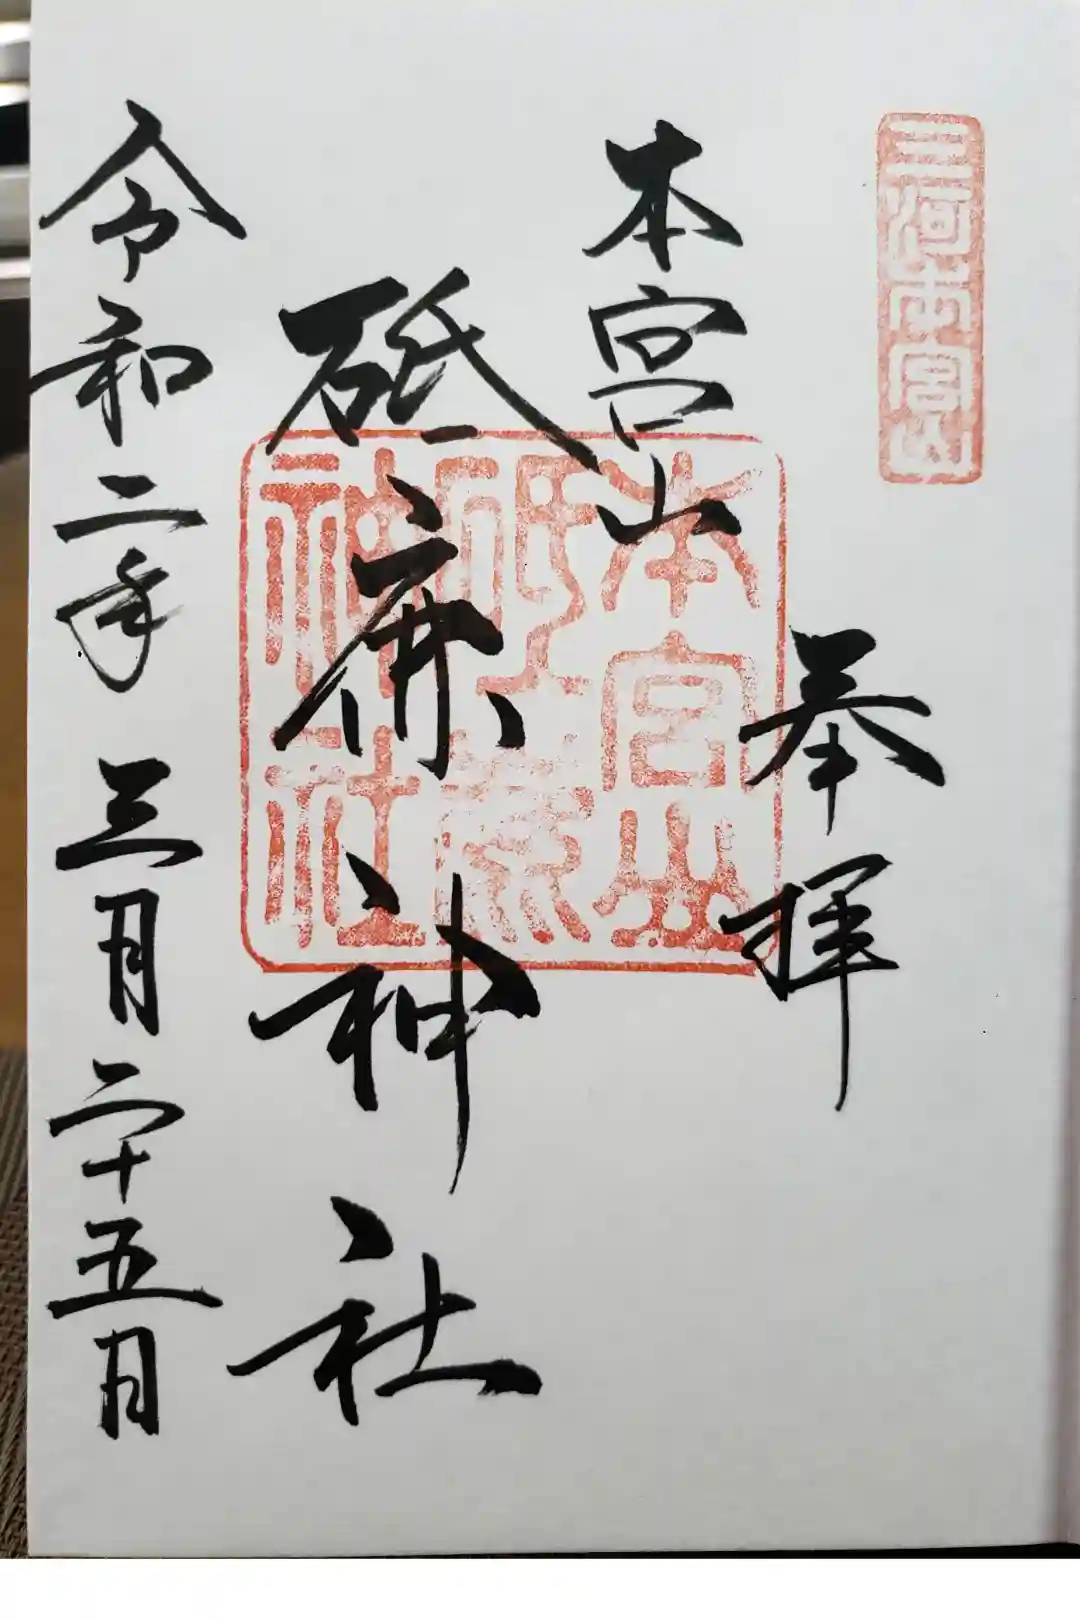 三河本宮山
奉拝
本宮山
砥鹿神社
令和二年三月二十五日
本宮山
砥鹿
神社